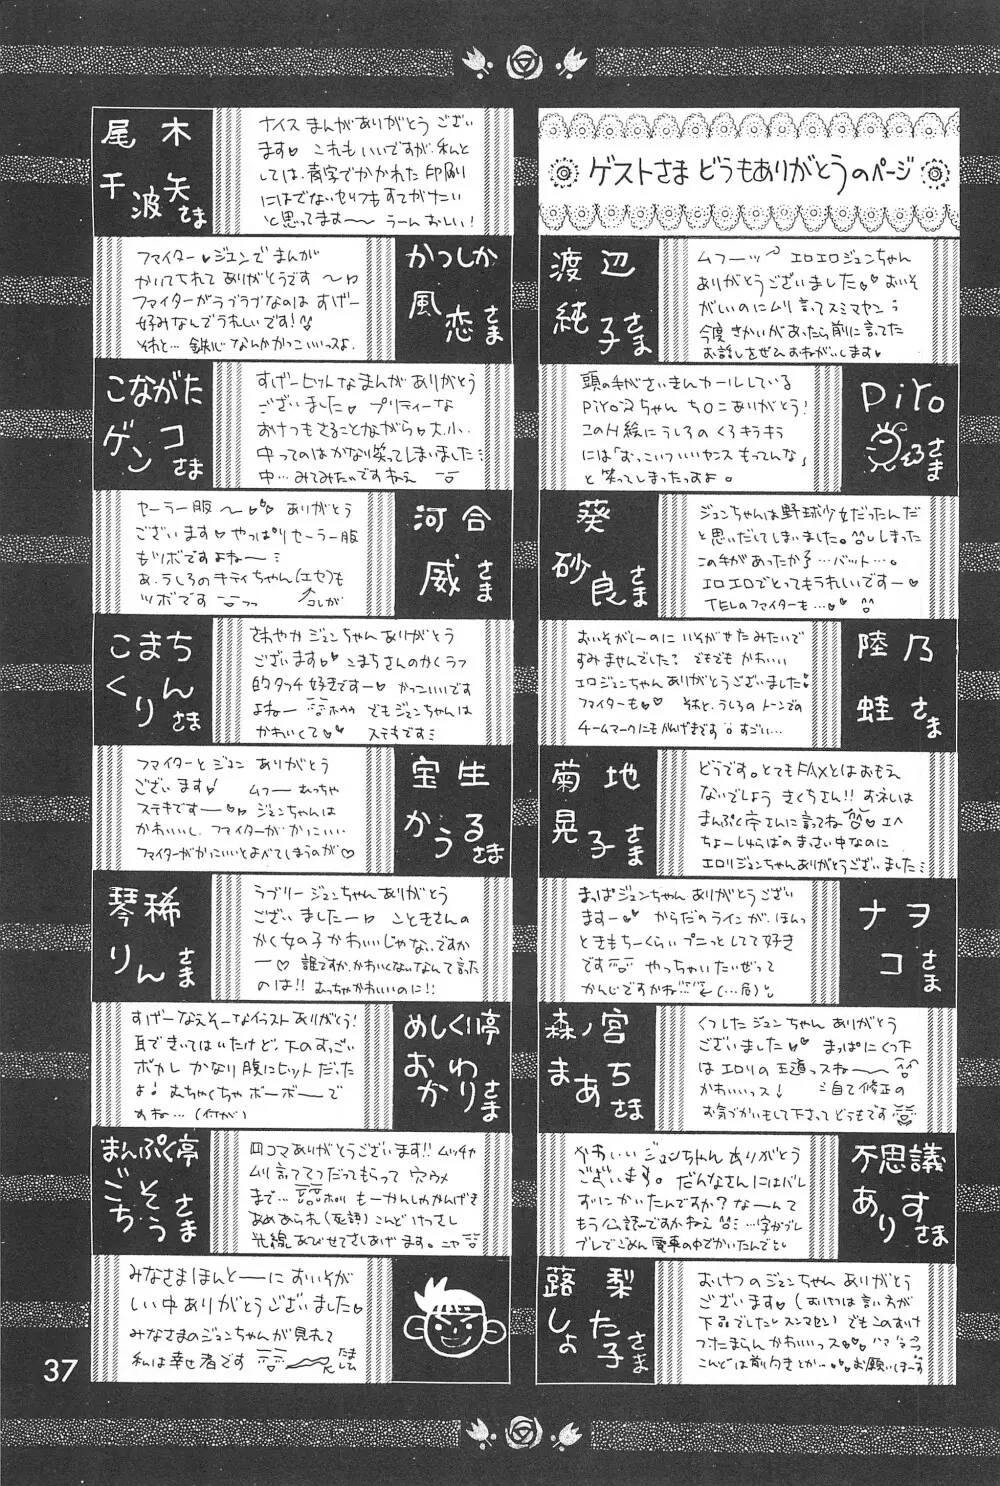 ゲストさま どうもありがとうのページ
渡辺
純子さま
ムフーッ エロエロジュンちゃん
ありがとうございました おいそ
がしいのにムリ言ってスミマセン
今度きかいがあったら前に言ってた
お話しをぜひおねがいします
Piroさま
頭の毛がさいまんカールしている
ちロニありがとう!
このH絵にうしろのくろキラキラ
には「お、こいついいヤンス もってんな」
と笑ってしまったっすよ。
葵
砂良さま
ジュンちゃんは野球少女だったんだ
と思いだしてしまいました。しまった
この手があったか…バット…。
エロエロでとってもうれしいですー
TELのファイターも…
陸乃
蛙さま
おいそがしーのにいそがせたみたいで
すみませんでした? でもでもかわいい
エロジュンちゃんありがとうございました
ファイターも それと、うしろのトーンでの
チームマークにもかんげきです すごい…
菊地
晃子さま
どうです。とてもFAXとはおもえ
ないでしょう きくちさん!! すネしは
まんぷく亭さんに言ってね エへ
ちょーしゅらばのまっさい中なのに
エロリジュンちゃんありがとうございました
ナヲコさま
まっぱジュンちゃん ありがとうござい
ますー からだのラインが、ほんっ
ときもちーくらい プニっとしてて好き
です やっちゃいたいぜって
かんじですかね (…
森ノ宮
まあちさま
くつしたジュンちゃん ありがとう
ございました まっぱにくつ下
は エロリの王道っスねー
かわいいっス! 自主修正の
お気づかいもして下さってどうもです
不思議
ありすさま
かわいいジュンちゃん ありがとう
ございます。だんなさんにはバレ
ずにかいたんですか? なーんて
もう伝説ですかねえ …字がブレ
ブレでごめん 電車の中でかいたんでと
蕗梨
しょた子さま
おけつのジュンちゃん ありがとう
ございます (おけつは言い方が
下品でした スンマセン) でもこのおけ
つたまらん かわいいっス
こんどは前向きとか… お願いしまーす
尾木
千波矢さま
ナイスまんがありがとうござい
ます これもいいですが、私と
しては、青字でかかれた印刷
にはでないセリフもすてがたい
と思ってますー うーんおしい!
かつしか
風恋さま
ファイター ジュンでまんが
かいてくれて ありがとうです
ファイターがラブラブなのは すげー
好みなんでうれしいです!
それと… 鉄じぃなんかかっこいいっスよ。
こながた
ゲンコさま
すげーヒットなまんがありがとう
ございました プリティーな
おけつもさることながら大小
中ってのはかなり笑ってしまいました
中…みてみたいですねえ
河合
威さま
セーラー服～ ありがとう
ございます やっぱりセーラー服
もツボですよねー
あ、うしろのキティちゃん(エセ)も
ツボです
コレが
こまち
くりんさま
さわやかジュンちゃんありがとう
ございます こまちさんのかくラフ
的タッチ好きですー かっこいいです
よねー でもジュンちゃんは
かわいくて ステキです
宝生
かうるさま
ファイターとジュン ありがとう
ございます! ムフー むっちゃ
ステキですー ジュンちゃんは
かわいいし、ファイターがかっこいい…
ファイターがかっこいいとよべてしまうのが
琴稀
りんさま
ラブリージュンちゃんありがとう
ございましたー ことききさんの
かく女の子かわいいじゃないですか
ー 誰ですか、かわいくないなんて言った
のは!! むっちゃかわいいのに!!
めしくい亭
おかわりさま
すげーなえそーなイラストありがとう!
耳できいてはいたけど、下のすっごい
ボカし かなり腹にヒットだった
よ! むちゃくちゃボーボーで
すね… (何が)
まんぷく亭
ごちそうさま
四コマありがとうございます!! ムッチャ
ムリ言ってつだってもらって 穴ウメ
まで… もーかんしゃかんげき
あめあられ(死語) こんど けっさし
光線あびせてさしあげます。ニャ
みなさまほんとーに おいそが
しい中ありがとうございました
みなさまのジュンちゃんが見れて
私は幸せ者です
37